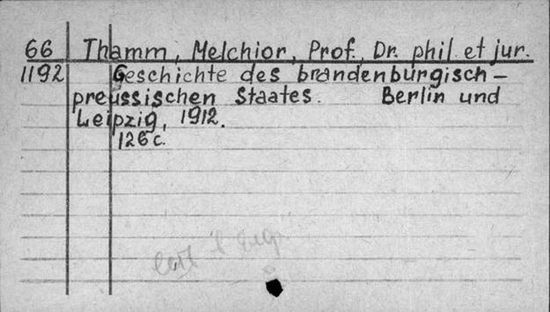 66 Thamm, Melchior, Prof. Dr. phil. et jur.
1192 Geschichte des brandenburgisch-
preussischen Staates. Berlin und
Leipzig, 1912.
126 c.